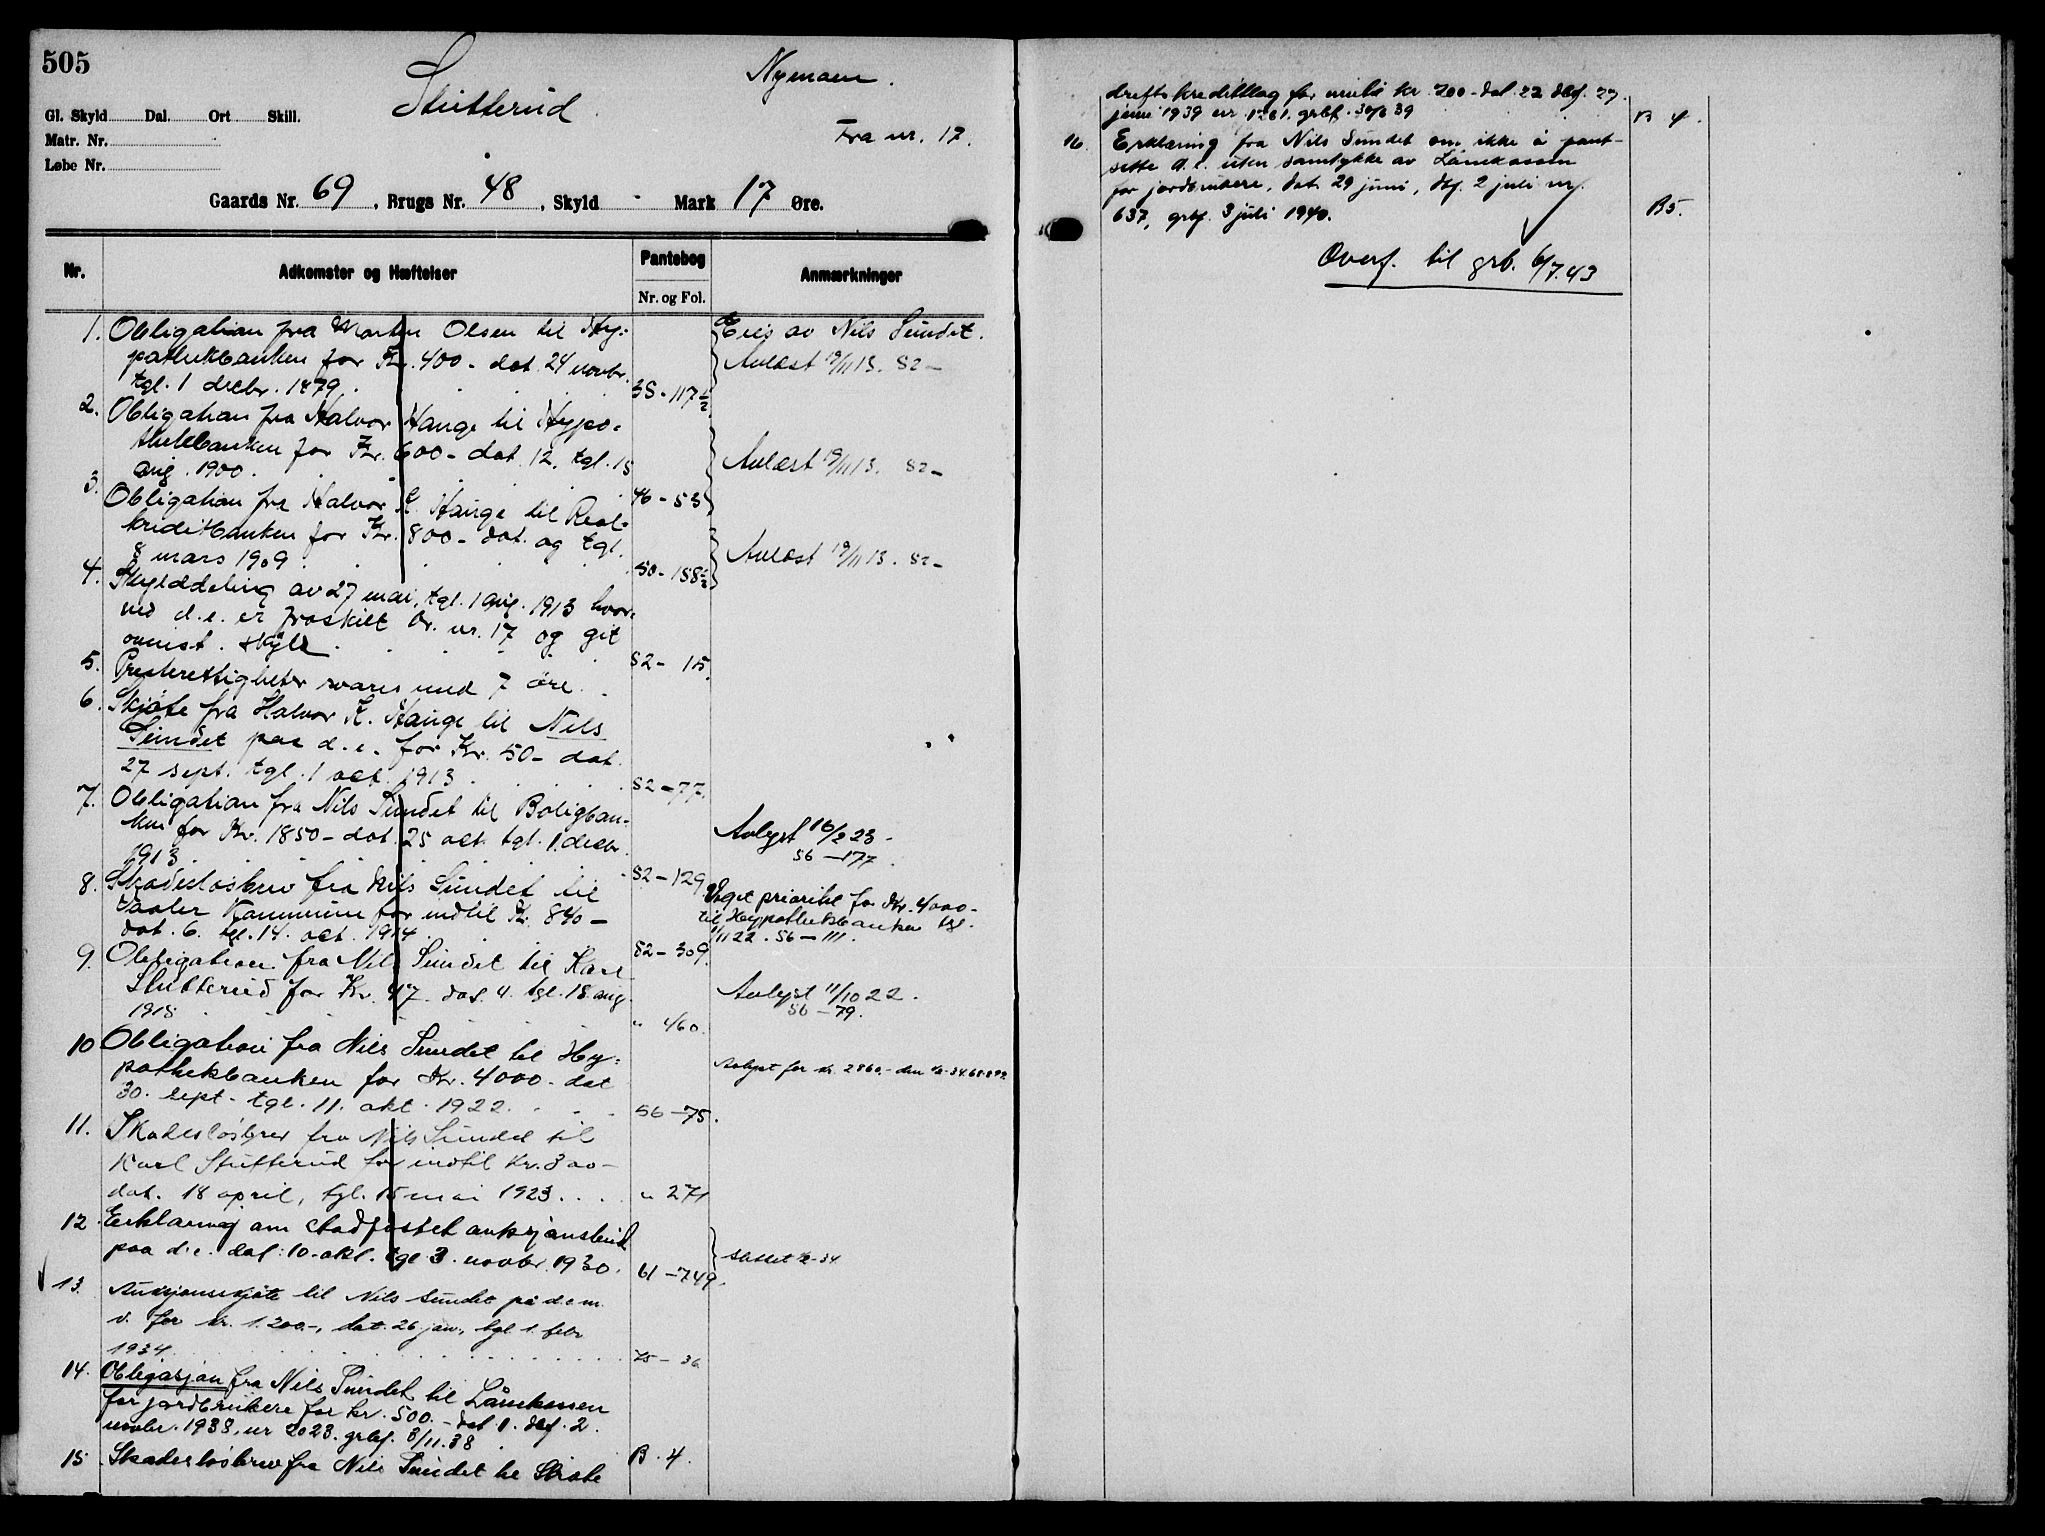 505
Stutterud
Nymoen.
Gl. Skyld Dal. Ort Skill.
Matr. Nr.
Løbe Nr.
Fra nr. 17.
Gaards Nr. 69, Brugs Nr. 48, Skyld - Mark 17 Øre.
Nr. Adkomster og Hæftelser Pantebog Anmærkninger
Nr. og Fol.
1. Obligation fra Morten Olsen til Hy-
pothekbanken for Kr. 400 - dat. 24 novbr.
tgl. 1 decbr. 1879. 38 - 117½
Eies av Nils Sundet.
Avlæst 19/11 13. S2 -
2. Obligation fra Halvor Hauge til Hypo-
thekbanken for Kr. 600 - dat. 12, tgl. 15
aug. 1900. 46 - 53
Avlæst 19/11 13. S2 -
3. Obligation fra Halvor K. Hauge til Real-
kreditbanken for Kr. 800 - dat. og tgl.
8 mars 1909. 50 - 158½
Avlæst 19/11 13. S2 -
4. Skylddeling av 27 mai, tgl. 1 aug. 1913 hvor-
ved d. e. er fraskilt br. nr. 17 og git
ovenst. skyld. S2 - 15.
5. Presterettigheter svares med 7 øre.
6. Skjøte fra Halvor K. Hauge til Nils
Sundet paa d. e. for Kr. 50 - dat.
27 sept. tgl. 1 oct. 1913. S2 - 77.
7. Obligation fra Nils Sundet til Boligban-
ken for Kr. 1850 - dat. 25 oct. tgl. 1. decbr.
1913. S2 - 129.
Avlyst 16/2 23 -
56 - 177.
8. Skadesløsbrev fra Nils Sundet til
Vaaler Kommune for indtil Kr. 840 -
dat. 6. tgl. 14. oct. 1914. S2 - 309.
Veget prioritet for Kr. 4000 -
til Hypothekbanken tgl.
1/11 22. 56 - 111.
9. Obligation fra Nils Sundet til Karl
Stutterud for Kr. 47. dat. 4. tgl. 18. aug.
1915. " 460.
Avlyst 11/10 22.
56 - 79.
10 Obligation fra Nils Sundet til Hy-
pothekbanken for Kr. 4000 - dat
30. sept. tgl. 11. okt. 1922. 56 - 75.
Avlyst for kr. 2860.- den
11. Skadesløsbrev fra Nils Sundet til
Karl Stutterud for indtil Kr. 300 -
dat. 18 april, tgl. 15 mai 1923. " 271
12. Erklæring om stadfestet auksjonsbud
paa d. e. dat. 10. okt. tgl 3. novbr. 1930. 61 - 749.
slettet 34
13. Auksjonsskjøte til Nils Sundet på d. e. m.
v. for kr. 1.200.-, dat. 26 jan., tgl. 1. febr.
1934. 75 - 36
14. Obligasjon fra Nils Sundet til Lånekassen
for jordbrukere for kr. 500.- dat. 1. dbf. 2.
novbr. 1938, nr 2023. grbf. 3/11. 38 B. 4.
15. Skadesløsbrev fra Nils Sundet til State
driftskredittlag for inntil kr. 200 - dat. 22 dbf. 27.
juni 1939 nr. 1261. grbf. 30/6 39 B 4.
16. Erklæring fra Nils Sundet om ikke å pant-
sette d. e. uten samtykke av Lånekassen
for jordbrukere, dat. 29 juni, dbf. 2 juli nr.
637, grbf. 3 juli 1940. B 5.
Overf. til grb. 6/7. 43